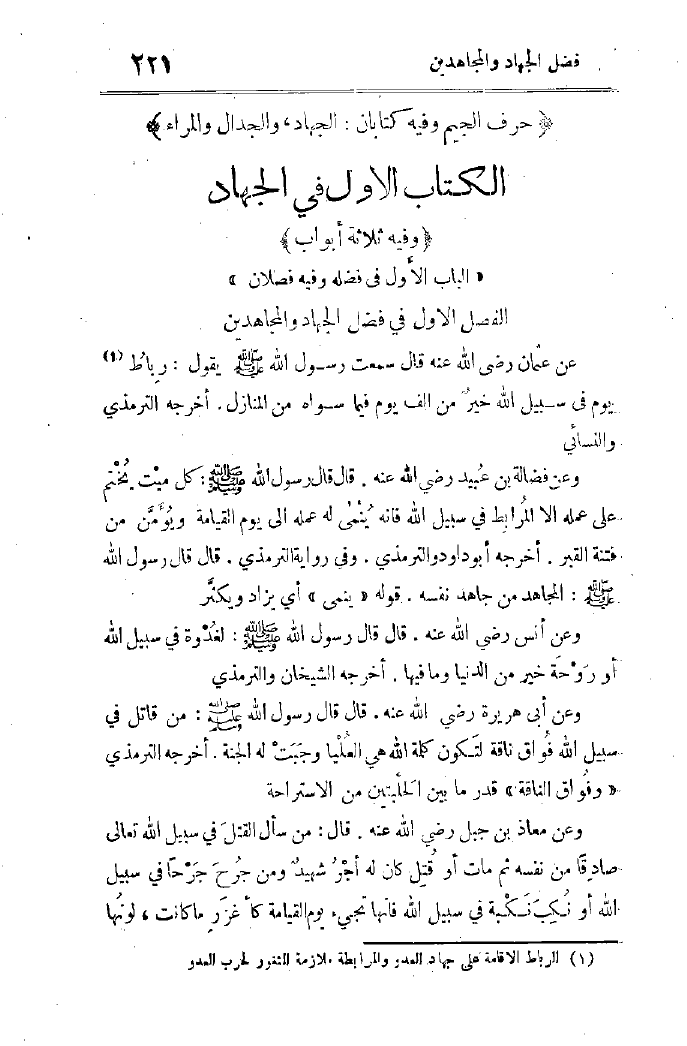 فضل الجهاد والمجاهدين ٢٢١
﴿ حرف الجيم وفيه كتابان : الجهاد، والجدال والمراء ﴾
الكتاب الاول في الجهاد
﴿ وفيه ثلاثة أبواب ﴾
« الباب الأول فى فضله وفيه فصلان »
الفصل الاول في فضل الجهاد والمجاهدين
عن عثمان رضى الله عنه قال سمعت رسول الله ﷺ يقول : رباطُ (١)
يوم فى سبيل الله خيرٌ من الف يوم فيما سواه من المنازل . أخرجه الترمذي
والنسائي
وعن فضالة بن عُبيد رضي الله عنه . قال قال رسول الله ﷺ : كل ميْت يُخْتم
على عمله الا المُرابط في سبيل الله فانه يُنْمٰى له عمله الى يوم القيامة ويُؤَمَّن من
فتنة القبر . أخرجه أبو داود والترمذي . وفي رواية الترمذي . قال قال رسول الله
ﷺ : المجاهد من جاهد نفسه . قوله « ينمى » أي يزاد ويكثَّر
وعن أنس رضي الله عنه . قال قال رسول الله ﷺ : لغَدْوة في سبيل الله
أو رَوْحَة خير من الدنيا وما فيها . أخرجه الشيخان والترمذي
وعن أبى هريرة رضي الله عنه . قال قال رسول الله ﷺ : من قاتل في
سبيل الله فُواق ناقة لتكون كلمة الله هي العُلْيا وجَبَتْ له الجنة . أخرجه الترمذي
« وفُواق الناقة » قدر ما بين الحلْبتين من الاستراحة
وعن معاذ بن جبل رضي الله عنه . قال : من سأل القتلَ في سبيل الله تعالى
صادقًا من نفسه ثم مات أو قُتِل كان له أجْرُ شهيدٌ ومن جُرحَ جَرْحًا في سبيل
الله أو نُكِبَ نَكْبة في سبيل الله فانها تجيء يوم القيامة كأغزَرِ ما كانت ، لونُها
(١) الرباط الاقامة على جهاد العدو والمرابطة ملازمة الثغور لحرب العدو